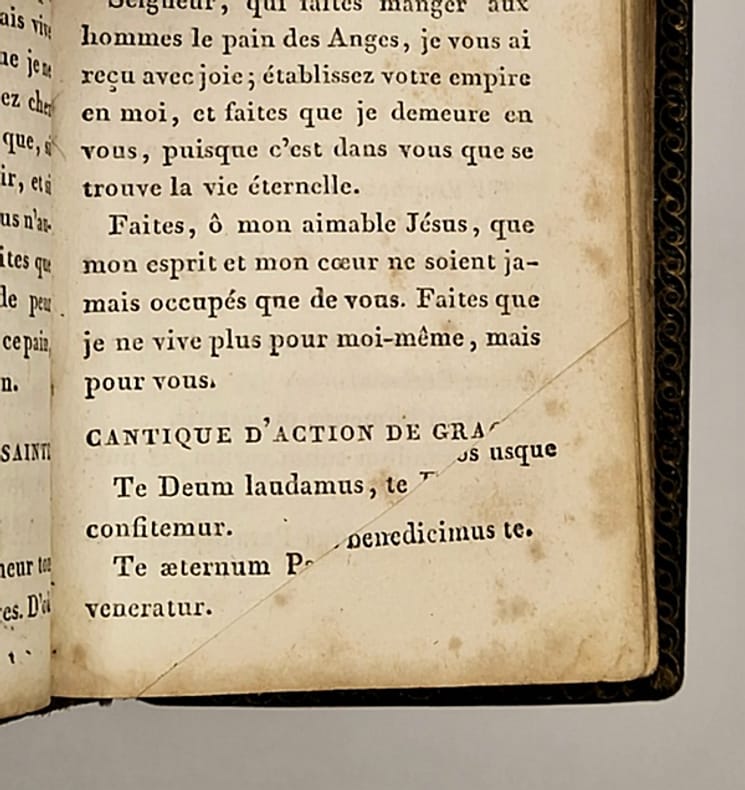 que,
ce pain,
Seigneur, qui faites manger aux
hommes le pain des Anges, je vous ai
reçu avec joie; établissez votre empire
en moi, et faites que je demeure en
vous, puisque c'est dans vous que se
trouve la vie éternelle.
Faites, ô mon aimable Jésus, que
mon esprit et mon cœur ne soient ja-
mais occupés qne de vous. Faites que
je ne vive plus pour moi-même, mais
pour vous.
CANTIQUE D'ACTION DE
usque
Te Deum laudamus, te
confitemur.
benedicimus te.
Te æternum
veneratur.